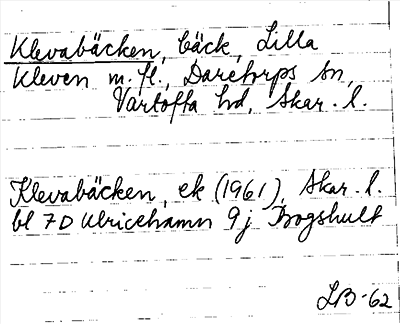 Klevabäcken, bäck, Lilla
Kleven m. fl., Daretorps sn,
Vartofta hd, Skar. l.
Klevabäcken, ek (1961), Skar. l.
bl 7D Ulricehamn 9j Brogshult
LB-62